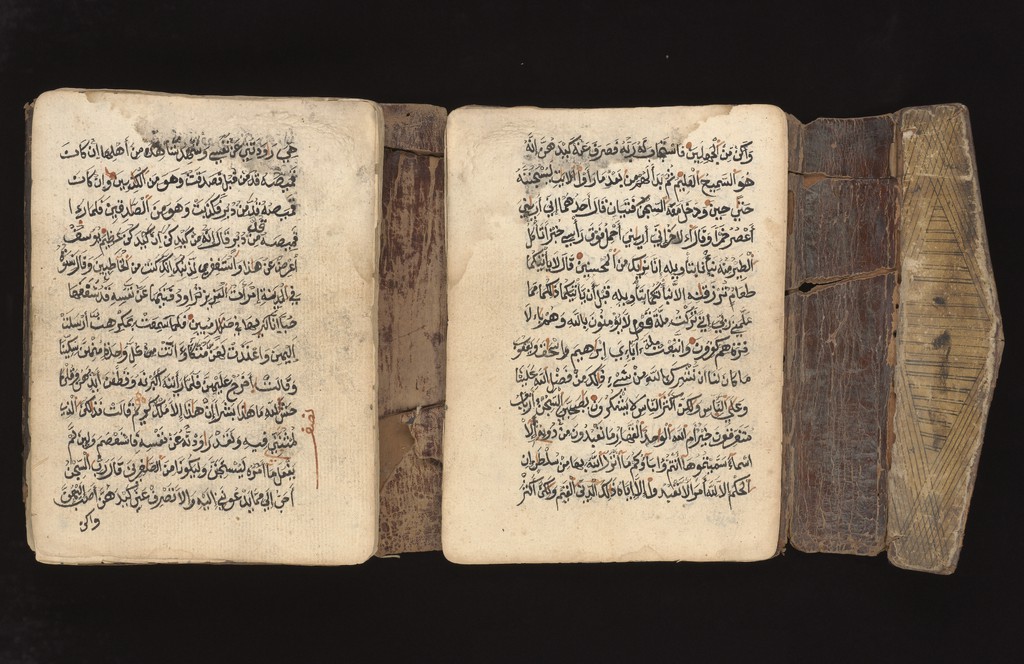 هي رودتني عن نفسي وشهد شاهد من أهلها إن كان
قميصه قد من قبل فصدقت وهو من الكذبين وإن كان
قميصه قد من دبر فكذبت وهو من الصدقين فلما رءا
قميصه قد من دبر قال إنه من كيدكن إن كيدكن عظيم يوسف
أعرض عن هذا واستغفري لذنبك إنك كنت من الخاطين وقال نسوة
في المدينة امرأت العزيز تراود فتيها عن نفسه قد شغفها
حبا إنا لنريها في ضلل مبين فلما سمعت بمكرهن أرسلت
إليهن وأعتدت لهن متكأ وءاتت كل وحدة منهن سكينا
وقالت اخرج عليهن فلما رأينه أكبرنه وقطعن أيديهن وقلن
حش لله ما هذا بشرا إن هذا إلا ملك كريم قالت فذلكن الذي
لمتنني فيه ولقد راودته عن نفسه فاستعصم ولين لم
يفعل ما ءامره ليسجنن وليكونا من الصغرين قال رب السجن
أحب إلي مما يدعونني إليه وإلا تصرف عني كيدهن أصب إليهن
وأكن
نصف
وأكن من الجهلين فاستجاب له ربه فصرف عنه كيدهن إنه
هو السميع العليم ثم بدا لهم من بعد ما رأوا الايت ليسجننه
حتى حين ودخل معه السجن فتيان قال أحدهما إني أريني
أعصر خمرا وقال الاخر إني أريني أحمل فوق رأسي خبزا تأكل
الطير منه نبئنا بتأويله إنا نريك من المحسنين قال لا يأتيكما
طعام ترزقانه إلا نبأتكما بتأويله قبل أن يأتيكما ذلكما مما
علمني ربي إني تركت ملة قوم لا يؤمنون بالله وهم بالا
خرة هم كفرون واتبعت ملة ءاباءي إبراهيم وإسحق ويعقوب
ما كان لنا أن نشرك بالله من شيء ذلك من فضل الله علينا
وعلى الناس ولكن أكثر الناس لا يشكرون يصحبي السجن ءأرباب
متفرقون خير أم الله الواحد القهار ما تعبدون من دونه إلا
أسماء سميتموها أنتم وءاباؤكم ما أنزل الله بها من سلطن إن
الحكم إلا لله أمر ألا تعبدوا إلا إياه ذلك الدين القيم ولكن أكثر